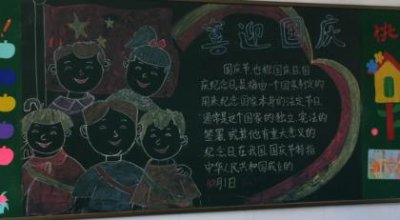 喜迎国庆
国庆节也称国庆日国
庆纪念日是指由一个国家制定的
用来纪念国家本身的法定节日
通常是这个国家的独立、宪法的
签署或其他有重大意义的
纪念日在我国国庆节特指
中华人民共和国成立的
10月1日